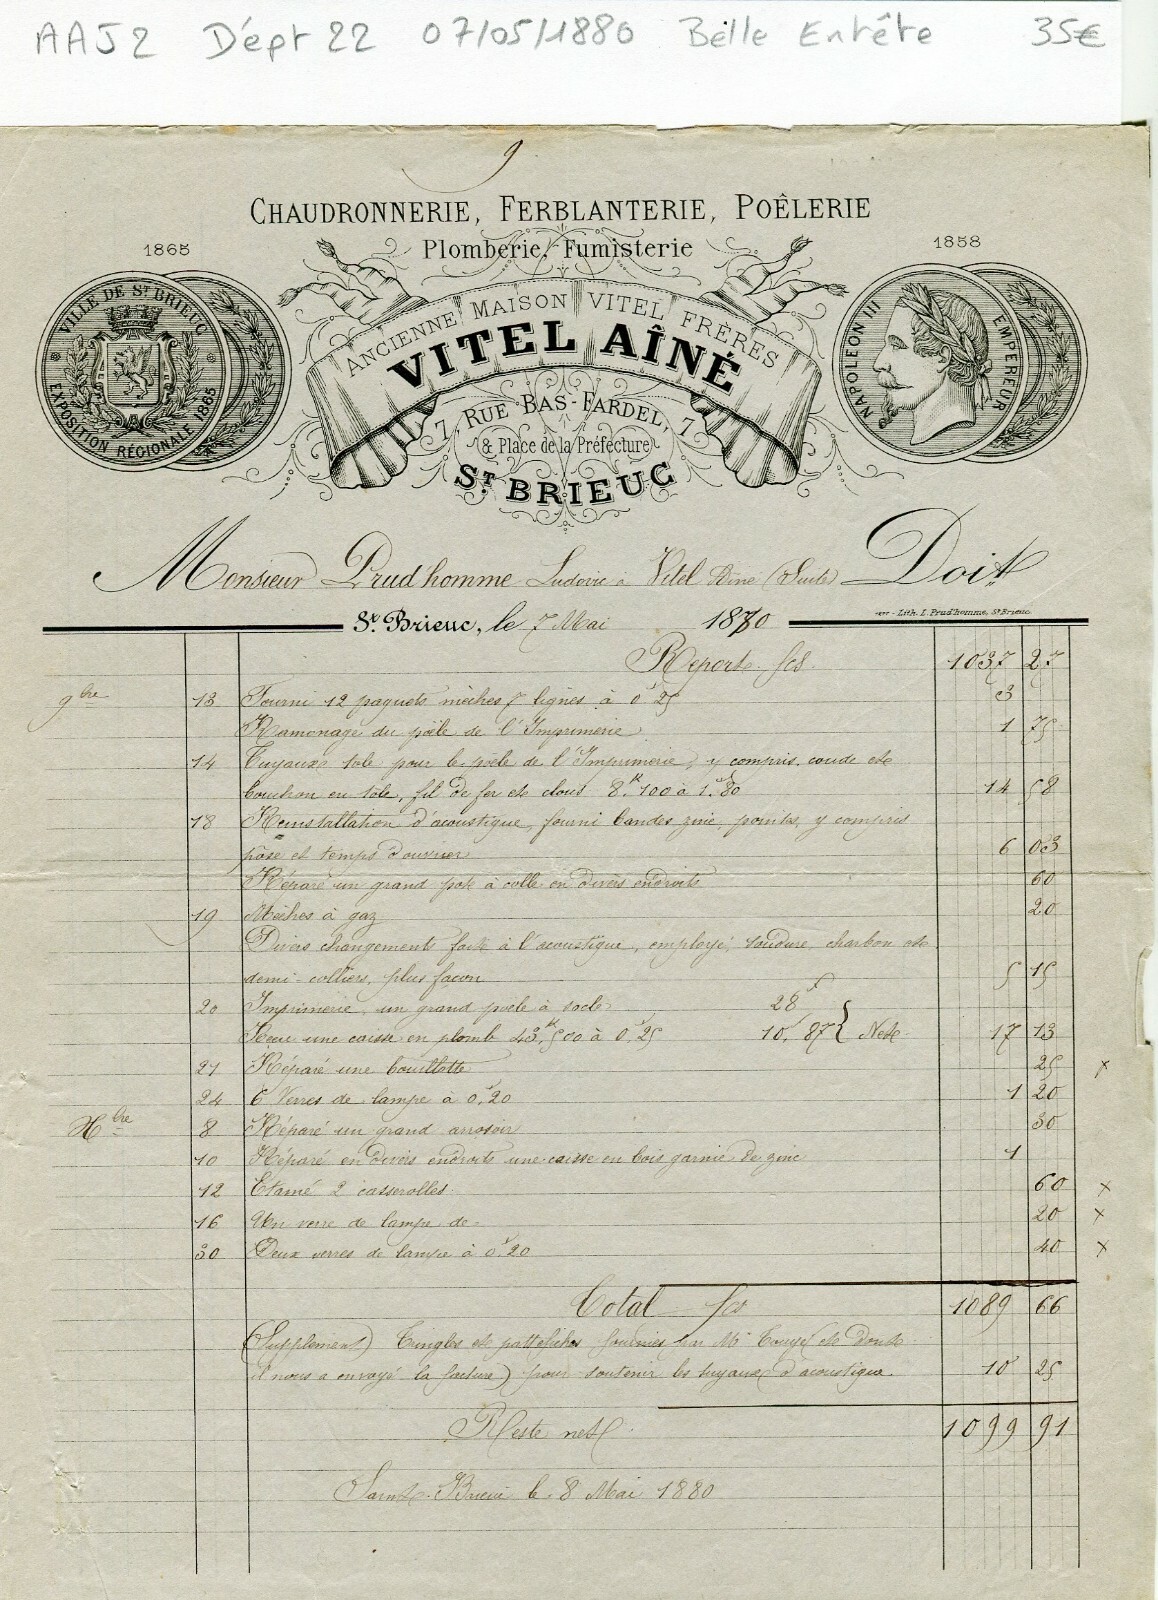 AAJ2 Dépt 22 07/05/1880 Belle Entête 35€
9
CHAUDRONNERIE, FERBLANTERIE, POÊLERIE
Plomberie, Fumisterie
1865
1858
VILLE DE ST BRIEUC
EXPOSITION RÉGIONALE 1865
ANCIENNE MAISON VITEL FRÈRES
VITEL AÎNÉ
7, RUE BAS-FARDEL, 7
& Place de la Préfecture
ST BRIEUC
NAPOLEON III EMPEREUR
Monsieur Prud'homme Ludovic à Vitel Aîné (Suite) Doit
Lith. L. Prud'homme, St Brieuc
St Brieuc, le 7 Mai 1880
Report fcs 1037 27
9bre 13 Fourni 12 paquets mèches 7 lignes à 0f 25 3
Ramonage du poêle de l'Imprimerie 1 75
14 Tuyaux tôle pour le poêle de l'Imprimerie, y compris, coude et
bouchon en tôle, fil de fer et clous 8k 100 à 1f.80 14 58
18 Réinstallation d'acoustique, fourni bandes zinc, pointes, y compris
pose et temps d'ouvrier 6 03
Réparé un grand pot à colle en divers endroits 60
19 Mèches à gaz 20
Divers changements fait à l'acoustique, employé, soudure, charbon et
demi-colliers, plus façon 5 15
20 Imprimerie, un grand poêle à socle 28f
Reçu une caisse en plomb 43k,500 à 0f,25 10,87 } Net 17 13
21 Réparé une bouillotte 25 x
24 6 Verres de lampe à 0f,20 1 20
Xbre 8 Réparé un grand arrosoir 30
10 Réparé en divers endroits une caisse en bois garnie de zinc 1
12 Etamé 2 casserolles 60 x
16 Un verre de lampe de 20 x
30 Deux verres de lampe à 0f.20 40 x
Total fcs 1089 66
(Supplément) Tringles et fournies par Mr et dont
il nous a envoyé la facture) pour soutenir les tuyaux d'acoustique. 10 25
Reste net 1099 91
Saint-Brieuc le 8 Mai 1880